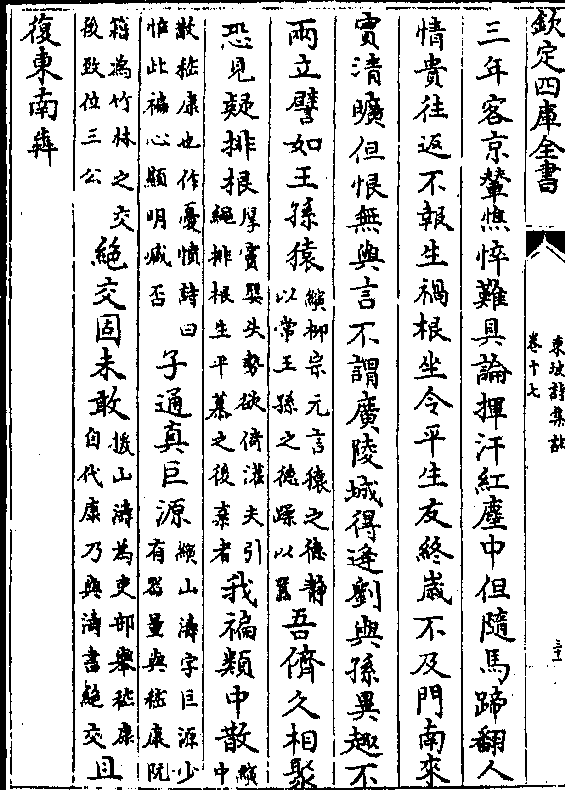 欽定四庫全書
東坡詩集註
卷十七
三年客京輦憔悴難具論揮汗紅塵中但隨馬蹄翻人
情貴往返不報生禍根坐令平生友終歲不及門南來
實清曠但恨無與言不謂廣陵城得逢劉與孫異趣不
兩立譬如王孫猿縯柳宗元言猿之德静以常王孫之德躁以嚚吾儕久相聚
恐見疑排根厚竇嬰失勢欲倚灌夫引繩排根生平慕之後棄者我褊類中散縯中
散嵇康也作憂憤詩曰惟此褊心顯明臧否子通真巨源縯山濤字巨源少有器量與嵇康阮
籍為竹林之交後致位三公絶交固未敢援山濤為吏部舉嵇康自代康乃與濤書絶交且
復東南犇